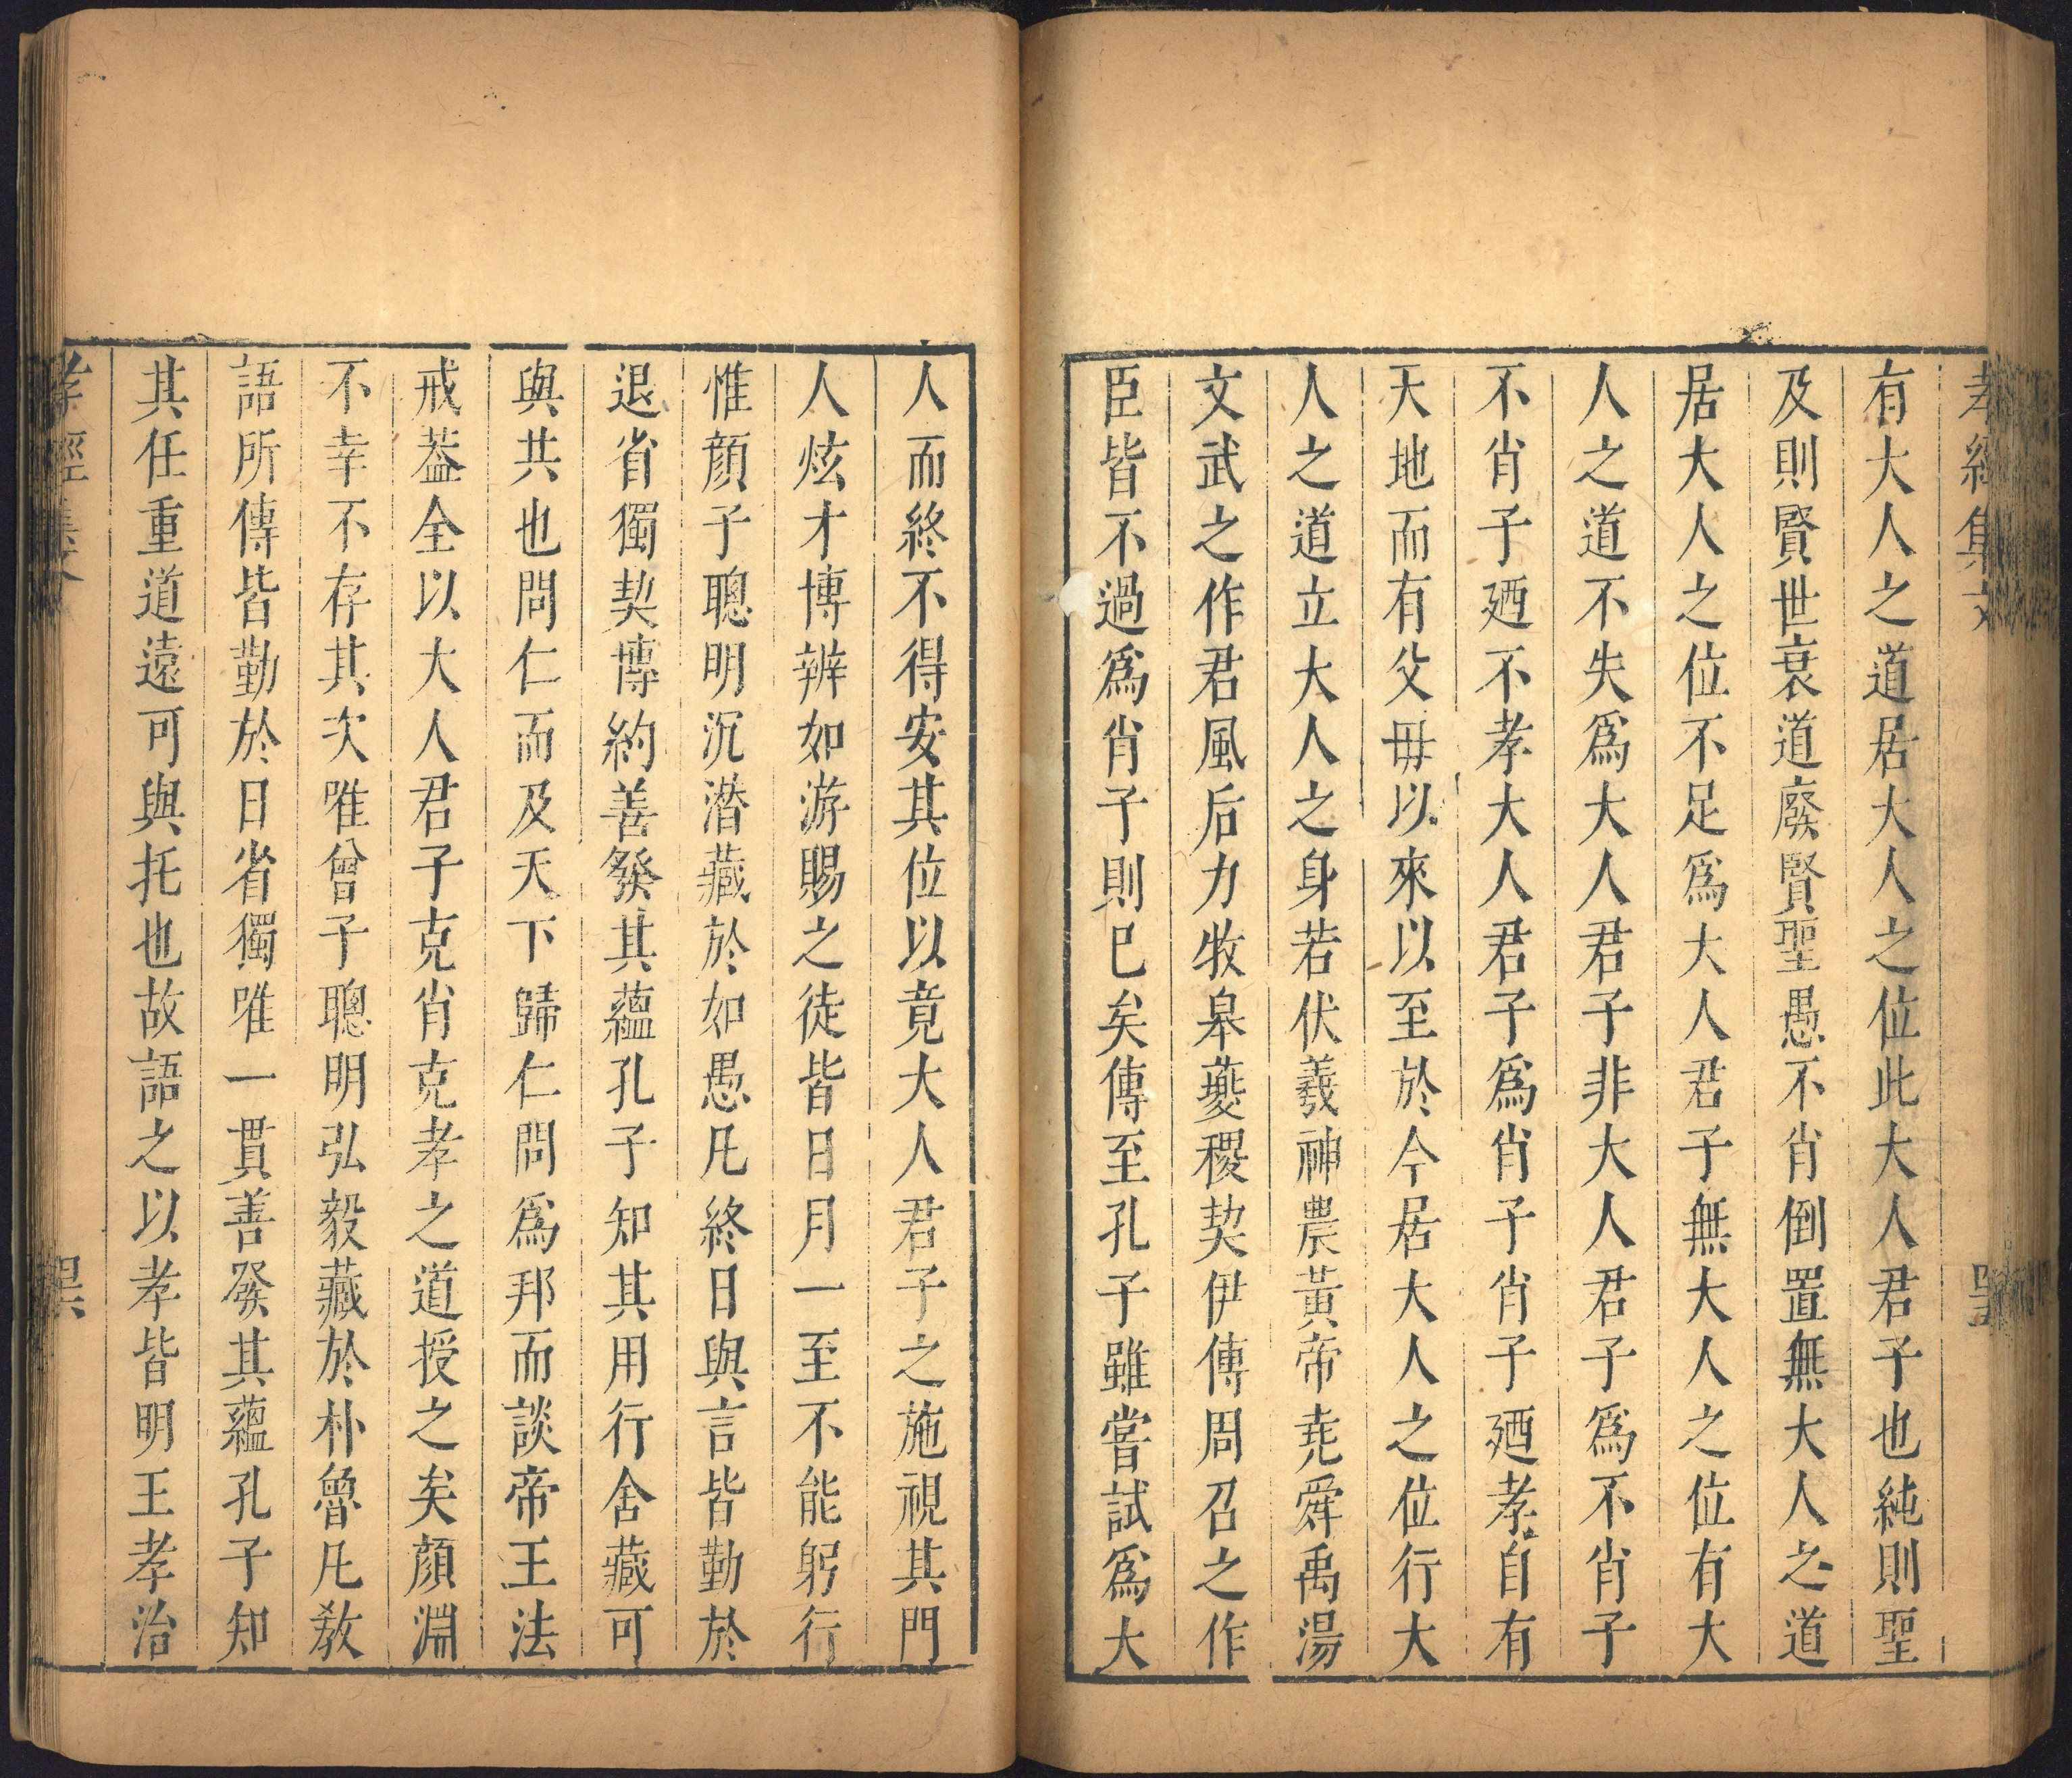 有大人之道居大人之位此大人君子也純則聖
及則賢世衰道廢賢聖愚不肖倒置無大人之道
居大人之位不足爲大人君子無大人之位有大
人之道不失爲大人君子非大人君子爲不肖子
不肖子廼不孝大人君子爲肖子肖子廼孝自有
天地而有父毋以來以至於今居大人之位行大
人之道立大人之身若伏羲神農黃帝堯舜禹湯
文武之作君風后力牧皋夔稷契伊傅周召之作
臣皆不過爲肖子則已矣傳至孔子雖嘗試爲大
人而終不得安其位以竟大人君子之施視其門
人炫才博辨如游賜之徒皆日月一至不能躬行
惟顔子聰明沉潛藏於如愚凡終日與言皆勤於
退省獨契博約善發其蘊孔子知其用行舍藏可
與共也問仁而及天下歸仁問爲邦而談帝王法
戒葢全以大人君子克肖克孝之道授之矣顔淵
不幸不存其次唯曾子聰明弘毅藏於朴魯凡敎
語所傳皆勤於日省獨唯一貫善發其蘊孔子知
其任重道遠可與托也故語之以孝皆明王孝治